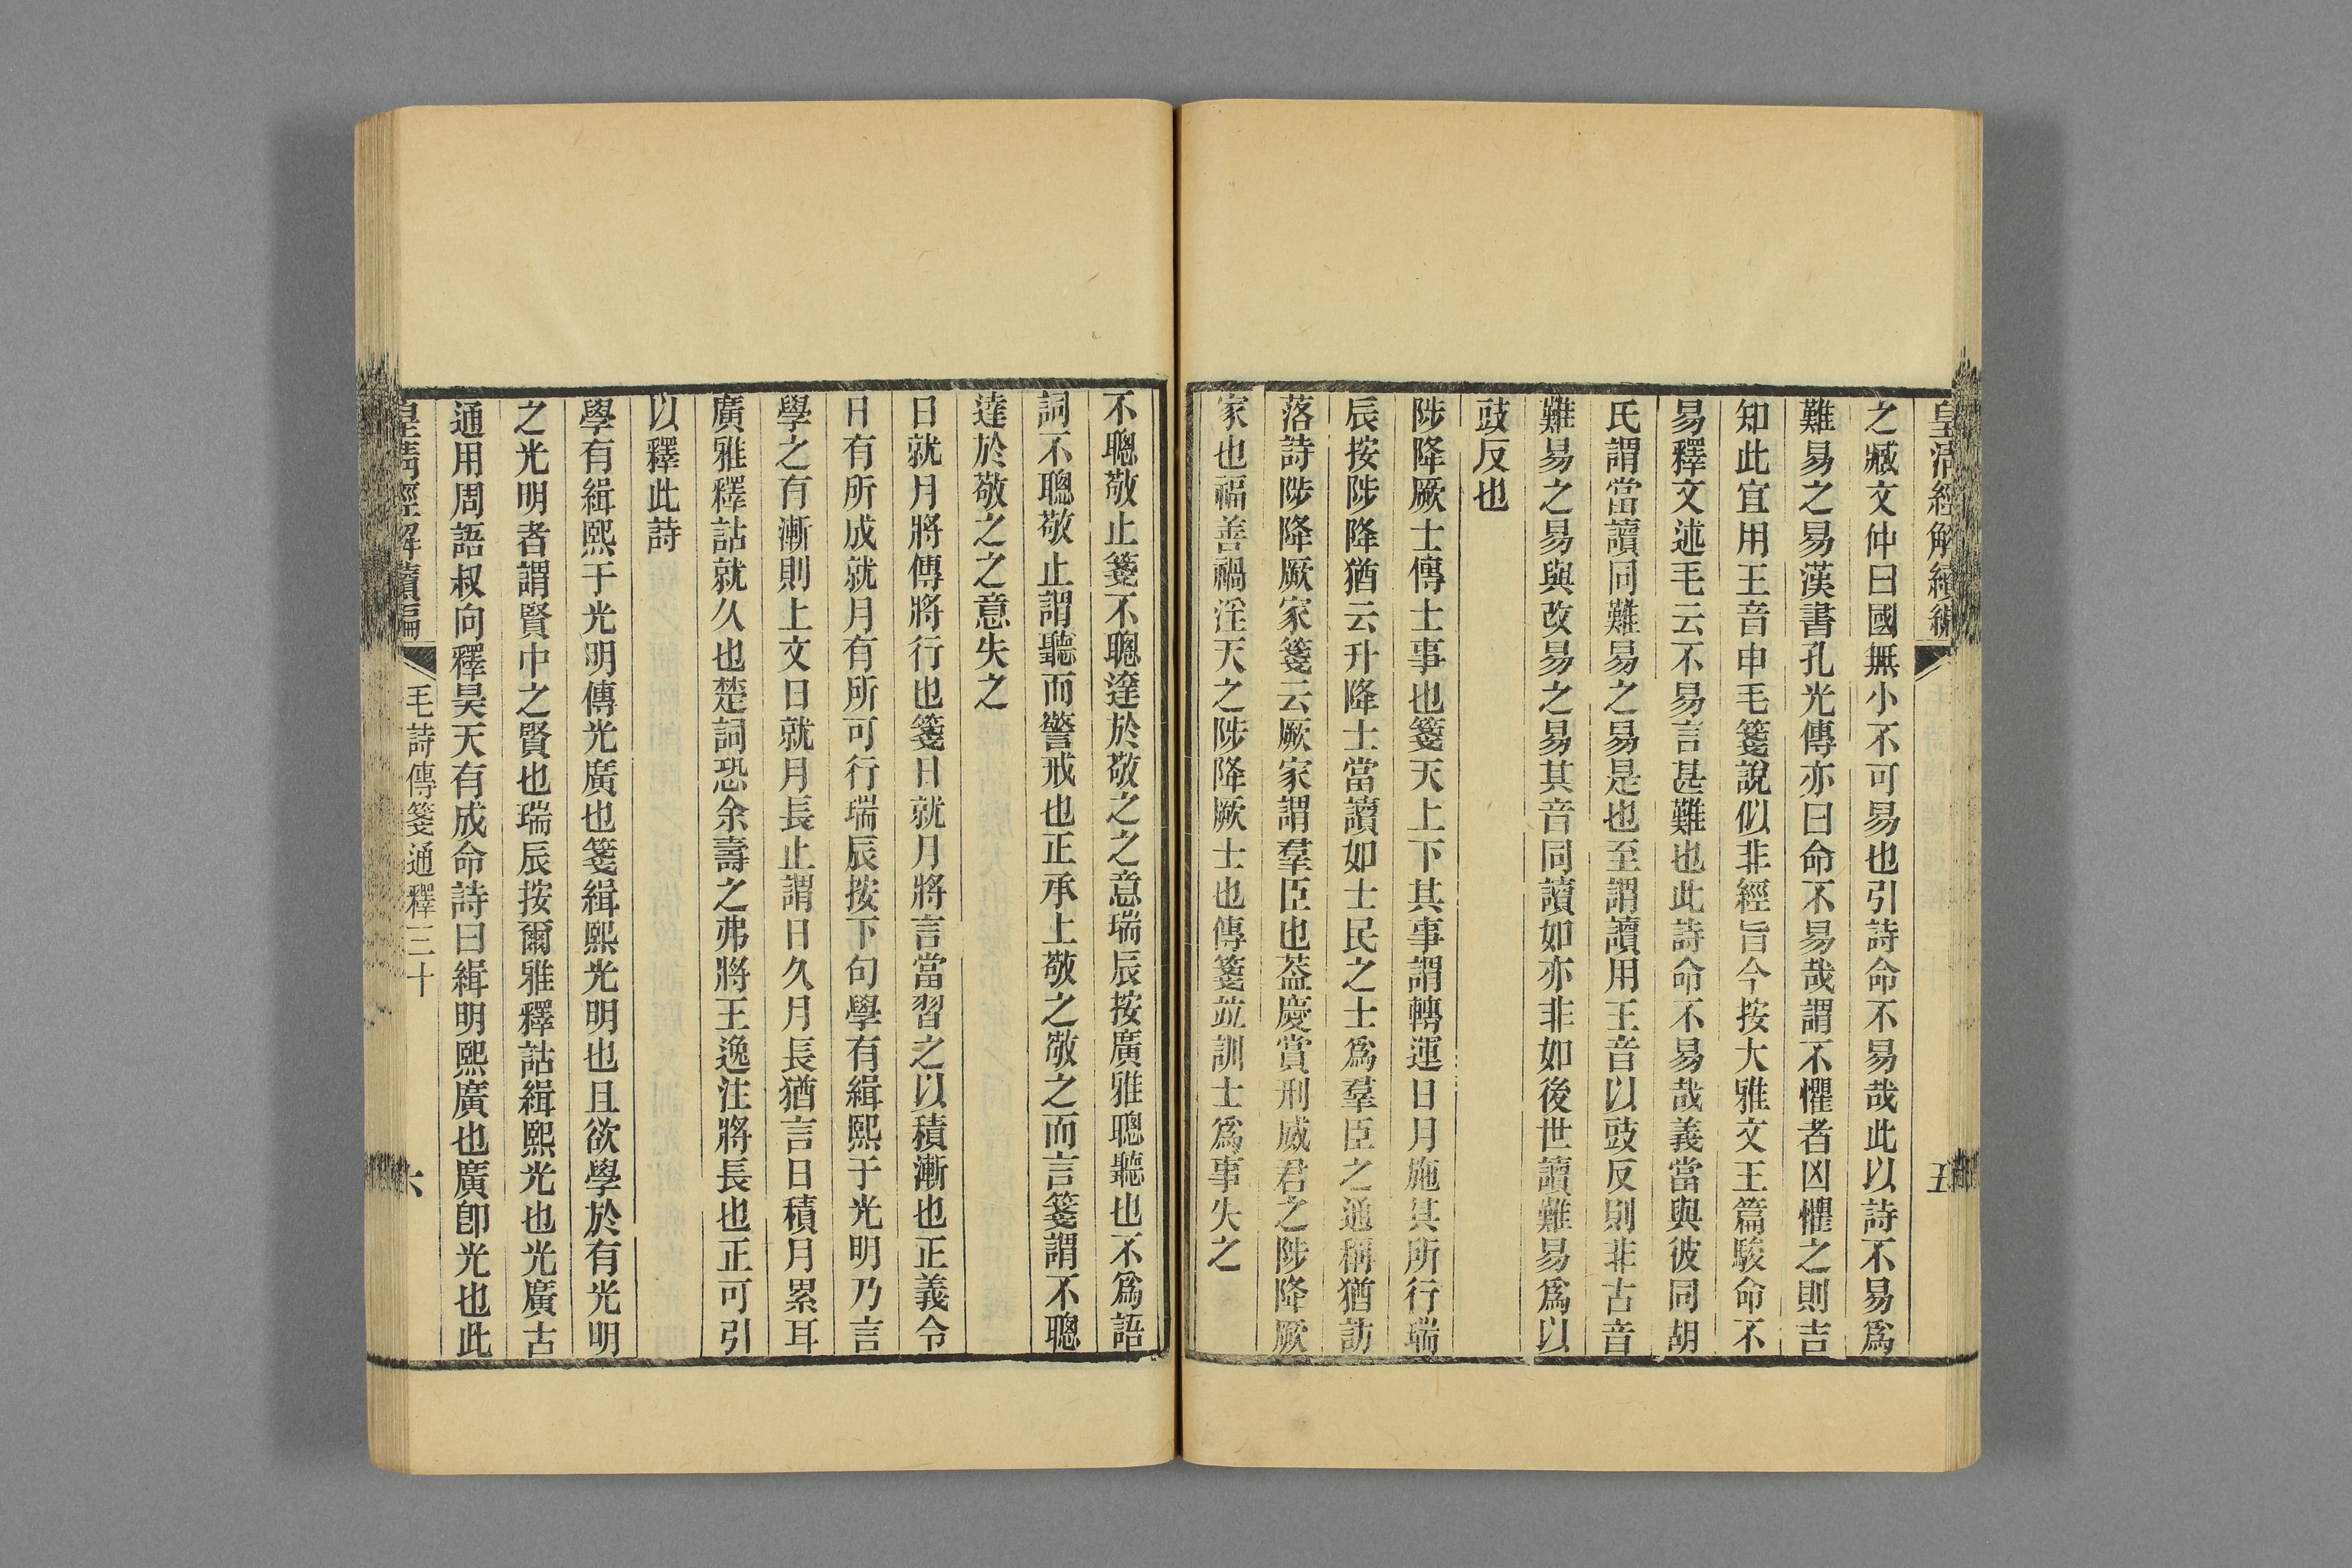 皇清經解續編
五
之臧文仲曰國無小不可易也引詩命不易哉此以詩不易爲
難易之易漢書孔光傳亦曰命不易哉謂不懼者凶懼之則吉
知此宜用王音申毛箋說似非經旨今按大雅文王篇駿命不
易釋文述毛云不易言甚難也此詩命不易哉義當與彼同胡
氏謂當讀同難易之易是也至謂讀用王音以豉反則非古音
難易之易與改易之易其音同讀如亦非如後世讀難易爲以
豉反也
陟降厥士傳士事也箋天上下其事謂轉運日月施其所行瑞
辰按陟降猶云升降士當讀如士民之士爲羣臣之通稱猶訪
落詩陟降厥家箋云厥家謂羣臣也葢慶賞刑威君之陟降厥
家也福善禍淫天之陟降厥士也傳箋竝訓士爲事失之
不聰敬止箋不聰達於敬之之意瑞辰按廣雅聰聽也不爲語
詞不聰敬止謂聽而警戒也正承上敬之敬之而言箋謂不聰
達於敬之之意失之
日就月將傳將行也箋日就月將言當習之以積漸也正義令
日有所成就月有所可行瑞辰按下句學有緝熙于光明乃言
學之有漸則上文日就月長止謂日久月長猶言日積月累耳
廣雅釋詁就久也楚詞恐余壽之弗將王逸注將長也正可引
以釋此詩
學有緝熙于光明傳光廣也箋緝熙光明也且欲學於有光明
之光明者謂賢中之賢也瑞辰按爾雅釋詁緝熙光也光廣古
通用周語叔向釋昊天有成命詩曰緝明熙廣也廣卽光也此
皇清經解續編
毛詩傳箋通釋三十
六